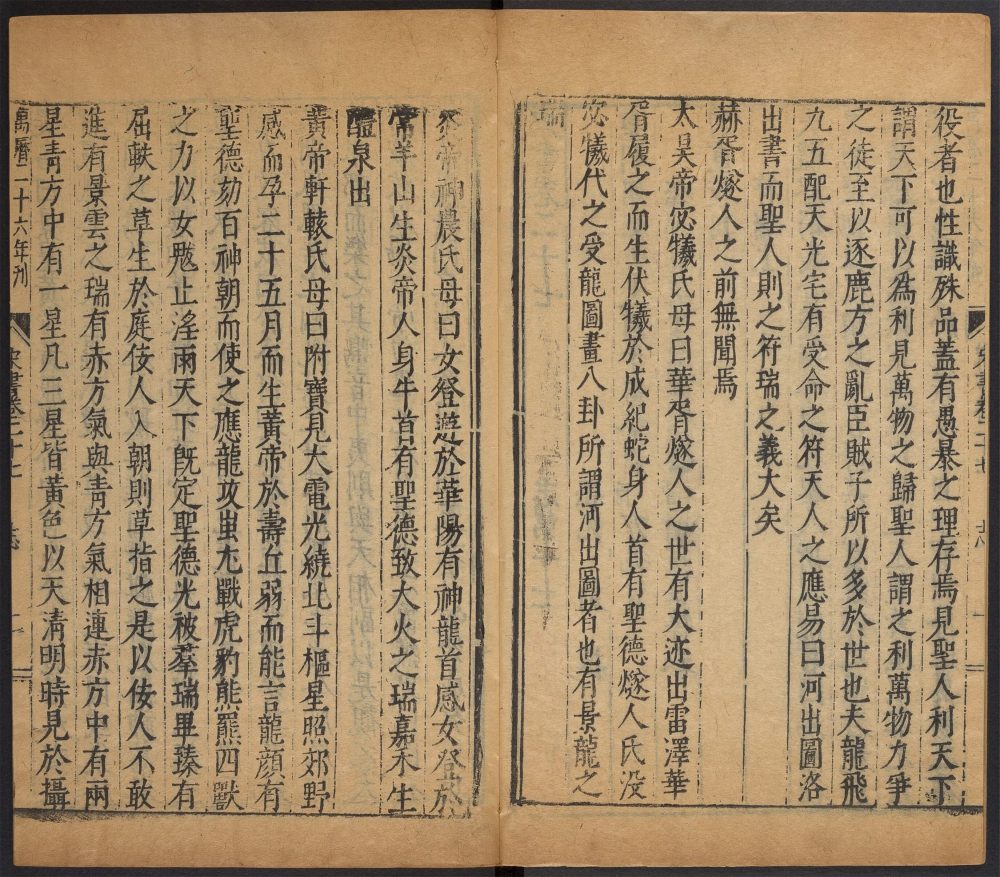 役者也性識殊品蓋有愚暴之理存焉見聖人利天下
謂天下可以為利見萬物之歸聖人謂之利萬物力爭
之徒至以逐鹿方之亂臣賊子所以多於世也夫龍飛
九五配天光宅有受命之符天人之應易曰河出圖洛
出書而聖人則之符瑞之義大矣
赫胥燧人之前無聞焉
太昊帝宓犧氏母曰華胥燧人之世有大迹出雷澤華
胥履之而生伏犧於成紀蛇身人首有聖德燧人氏没
宓犧代之受龍圖畫八卦所謂河出圖者也有景龍之
瑞
炎帝神農氏母曰女登遊於華陽有神龍首感女登於
常羊山生炎帝人身牛首有聖德致大火之瑞嘉禾生
醴泉出
黃帝軒轅氏母曰附寶見大電光繞北斗樞星照郊野
感而孕二十五月而生黃帝於壽丘弱而能言龍顏有
聖德劾百神朝而使之應龍攻蚩尤戰虎豹熊羆四獸
之力以女魃止淫雨天下旣定聖德光被羣瑞畢臻有
屈軼之草生於庭佞人入朝則草指之是以佞人不敢
進有景雲之瑞有赤方氣與青方氣相連赤方中有兩
星青方中有一星凡三星皆黃色以天清明時見於攝
萬曆二十六年刊